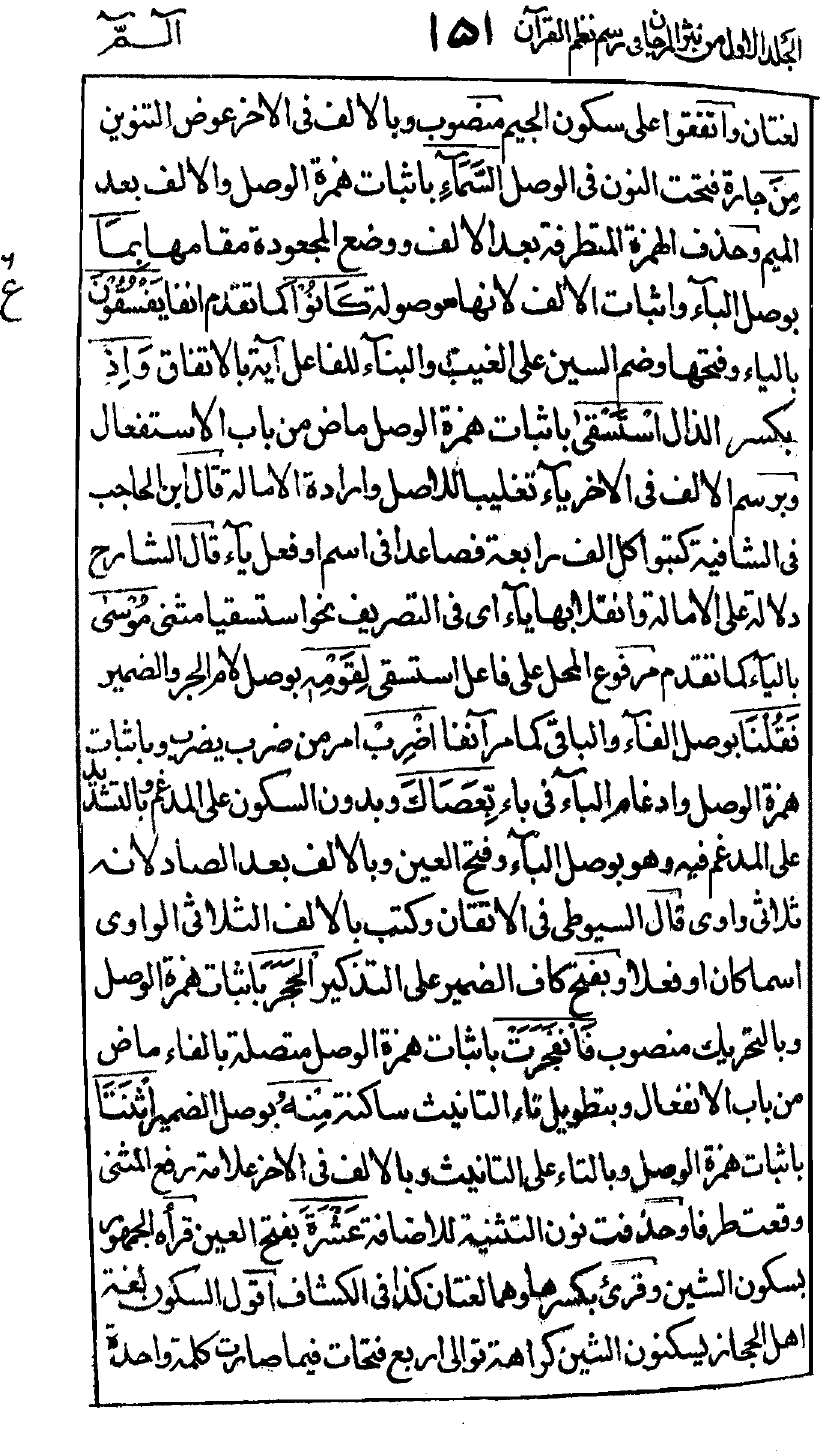 الجلد الاول من نثر المرجان فى رسم نظم القرآن
١٥١
الـــمّ
لغتان واتفقوا على سكون الجيم منصوب وبالالف فى الاخر عوض التنوين
مِنَ جارة فتحت النون فى الوصل السَّمَآءِ باثبات همزة الوصل والالف بعد
الميم وحذف الهمزة المتطرفة بعد الالف ووضع المجعودة مقامها بِمَا
بوصل البآء واثبات الالف لانها موصولة كَانُوْا كما تقدم انفا يَفْسُقُوْنَ
بالياء وفتحها وضم السين على الغيب والبنآء للفاعل آية بالاتفاق وَاِذِ
بكسر الذال اسْتَسْقٰى باثبات همزة الوصل ماض من باب الاستفعال
وبرسم الالف فى الاخر يآء تغليبا للاصل وارادة الامالة قال ابن الحاجب
فى الشافية كتبوا كل الف رابعة فصاعدا فى اسم او فعل يآء قال الشارح
دلالة على الامالة وانقلابها يآء اى فى التصريف نحو استسقيا مثنى مُوْسٰى
باليآء كما تقدم مرفوع المحل على فاعل استسقى لِقَوْمِهٖ بوصل لام الجر والضمير
فَقُلْنَا بوصل الفآء والباقى كما مر آنفا اضْرِبْ امر من ضرب يضرب وباثبات
همزة الوصل وادغام البآء فى باء بِّعَصَاكَ وبدون السكون على المدغم وبالتشديد
على المدغم فيه وهو بوصل البآء وفتح العين وبالالف بعد الصاد لانه
ثلاثى واوى قال السيوطى فى الاتقان وكتب بالالف الثلاثى الواوى
اسما كان او فعلا وبفتح كاف الضمير على التذكير الْحَجَرَ باثبات همزة الوصل
وبالتحريك منصوب فَانْفَجَرَتْ باثبات همزة الوصل متصلة بالفاء ماض
من باب الانفعال وبتطويل تاء التانيث ساكنة مِنْهُ بوصل الضمير اثْنَتَا
باثبات همزة الوصل وبالتاء على التانيث وبالالف فى الاخر علامة رفع المثنى
وقعت طرفا وحذفت نون التثنية للاضافة عَشْرَةَ بفتح العين قرأه الجمهور
بسكون الشين وقرئ بكسرها وهما لغتان كذا فى الكشاف اقول السكون لغة
اهل الحجاز يسكنون الشين كراهة توالى اربع فتحات فيما صارت كلمة واحدة
ع